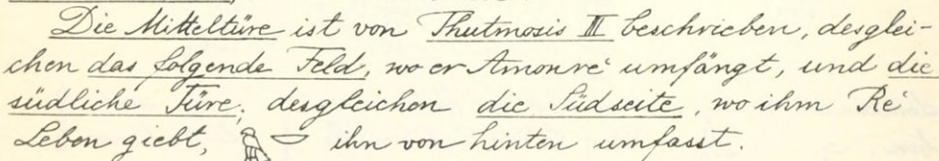 Die Mitteltüre ist von Thutmosis III beschrieben, desglei-
chen das folgende Feld, wo er Amonre' umfängt, und die
südliche Türe; desgleichen die Südseite, wo ihm Re'
Leben giebt, ihn von hinten umfasst.